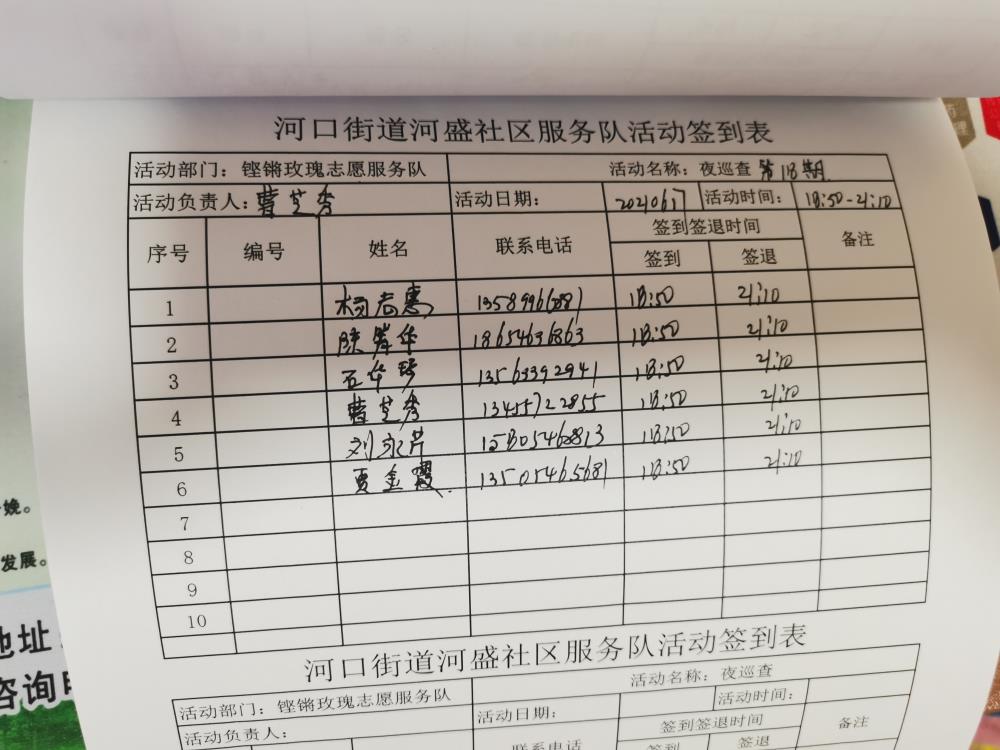 河口街道河盛社区服务队活动签到表
活动部门：铿锵玫瑰志愿服务队 活动名称：夜巡查 第18期
活动负责人：曹芝秀 活动日期： 活动时间：18:50-21:10
序号 编号 姓名 联系电话 签到签退时间 备注
签到 签退
1 18:50 21:10
2 18654636863 18:50 21:10
3 石华琴 13563392941 18:50 21:10
4 曹芝秀 13455722855 18:50 21:10
5 刘永芹 15805462813 18:50 21:10
6 贾金霞 13505465681 18:50 21:10
7
8
9
10
河口街道河盛社区服务队活动签到表
活动部门：铿锵玫瑰志愿服务队 活动名称：夜巡查
活动负责人： 活动日期： 活动时间：
联系电话 签到签退时间 备注
签到 签退
娩。
发展。
地址
咨询